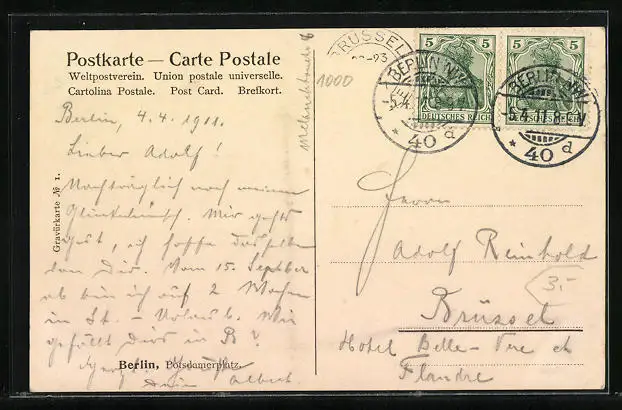 Postkarte — Carte Postale
Weltpostverein. Union postale universelle.
Cartolina Postale. Post Card. Brefkort.
Berlin, 4.4.1911.
Lieber Adolf!
Nachträglich noch meinen
Glückwunsch. Mir geht's
gut, ich hoffe dasselbe
von Dir. Vom 15. September
ab bin ich auf 2 Wochen
in Urlaub. Wie
gefällt Dirs in B?
Dein Albert
Gravürkarte № 1.
Berlin, Potsdamerplatz.
1000
BERLIN N.W.
-5.4.
* 40 d
BERLIN N.W.
5.4.11.8-
* 40 d
5 5
DEUTSCHES REICH
5 5
DEUTSCHES REICH
Herrn
Adolf Reinhold
Brüssel
3.-
Hotel Belle-Vue et
Flandre